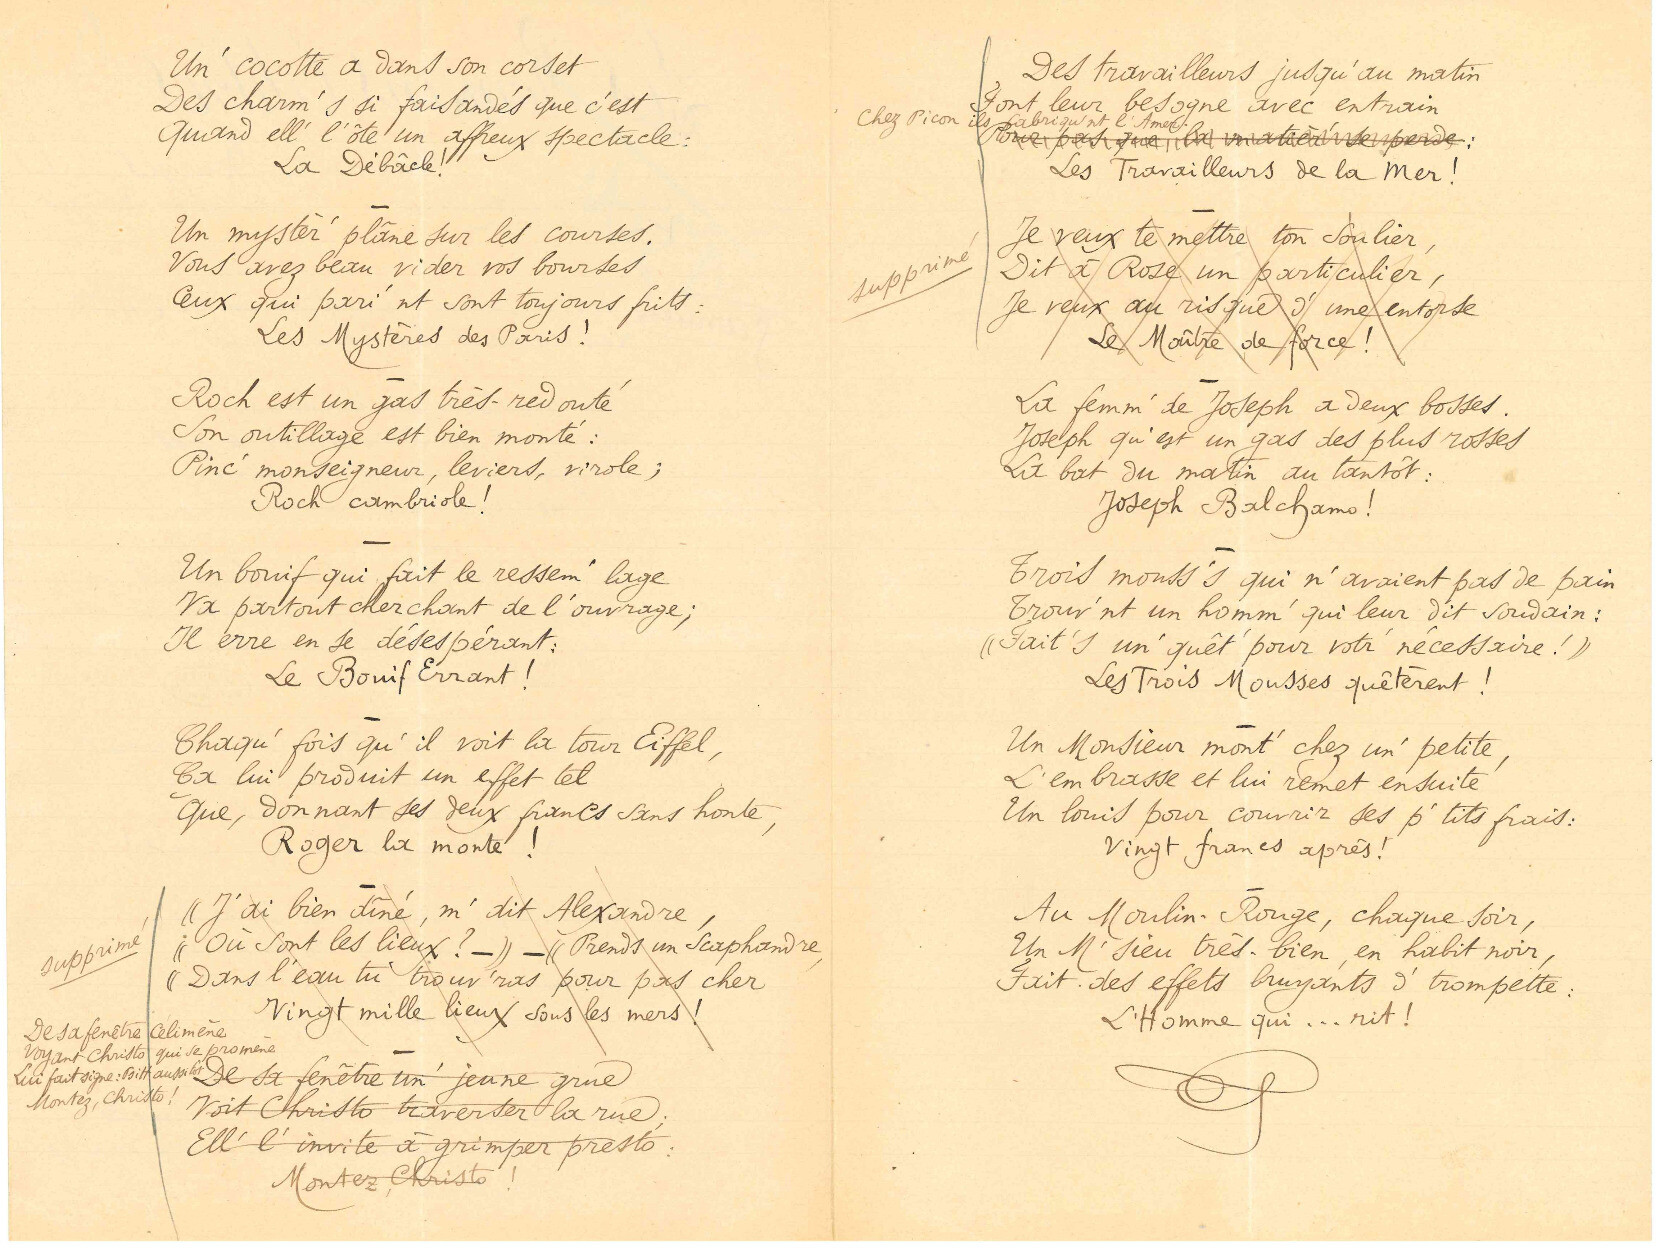 Un' cocotte a dans son corset
Des charm's si faisandés que c'est
Quand ell' l'ôte un affreux spectacle :
La Débâcle !
Un mystèr' plâne sur les courses.
Vous avez beau vider vos bourses
Ceux qui pari'nt sont toujours frits :
Les Mystères des Paris !
Roch est un gas très-redouté
Son outillage est bien monté :
Pinc' monseigneur, leviers, virole ;
Roch cambriole !
Un bouif qui fait le ressem'lage
Va partout cherchant de l'ouvrage ;
Il erre en se désespérant :
Le Bouif Errant !
Chaqu' fois qu'il voit la tour Eiffel,
Ça lui produit un effet tel
Que, donnant ses deux francs sans honte,
Roger la monte !
supprimé
« J'ai bien dîné, m' dit Alexandre,
« Où sont les lieux ? — » — « Prends un scaphandre,
« Dans l'eau tu trouv'ras pour pas cher
Vingt mille lieux sous les mers !
De sa fenêtre Célimène
Voyant Christo qui se promène
Lui fait signe : Bitt aussitôt
Montez, Christo !
De sa fenêtre un' jeune grue
Voit Christo traverser la rue ;
Ell' l'invite à grimper presto :
Montez, Christo !
Des travailleurs jusqu'au matin
Font leur besogne avec entrain
Chez Picon ils fabriqu'nt l'Amer :
Pour pas que la matièr' se perde :
Les Travailleurs de la Mer !
supprimé
Je veux te mettre ton soulier,
Dit à Rose un particulier,
Je veux au risque d'une entorse
Le Maître de force !
La femm' de Joseph a deux bosses.
Joseph qu'est un gas des plus rosses
La bat du matin au tantôt :
Joseph Balchamo !
Trois mouss's qui n'avaient pas de pain
Trouv'nt un homm' qui leur dit soudain :
« Fait's un' quêt' pour votr' nécessaire ! »
Les Trois Mousses quêtèrent !
Un Monsieur mont' chez un' petite,
L'embrasse et lui remet ensuite
Un louis pour couvrir ses p'tits frais :
Vingt francs après !
Au Moulin-Rouge, chaque soir,
Un M'sieu très-bien, en habit noir,
Fait des effets bruyants d'trompette :
L'Homme qui ... rit !